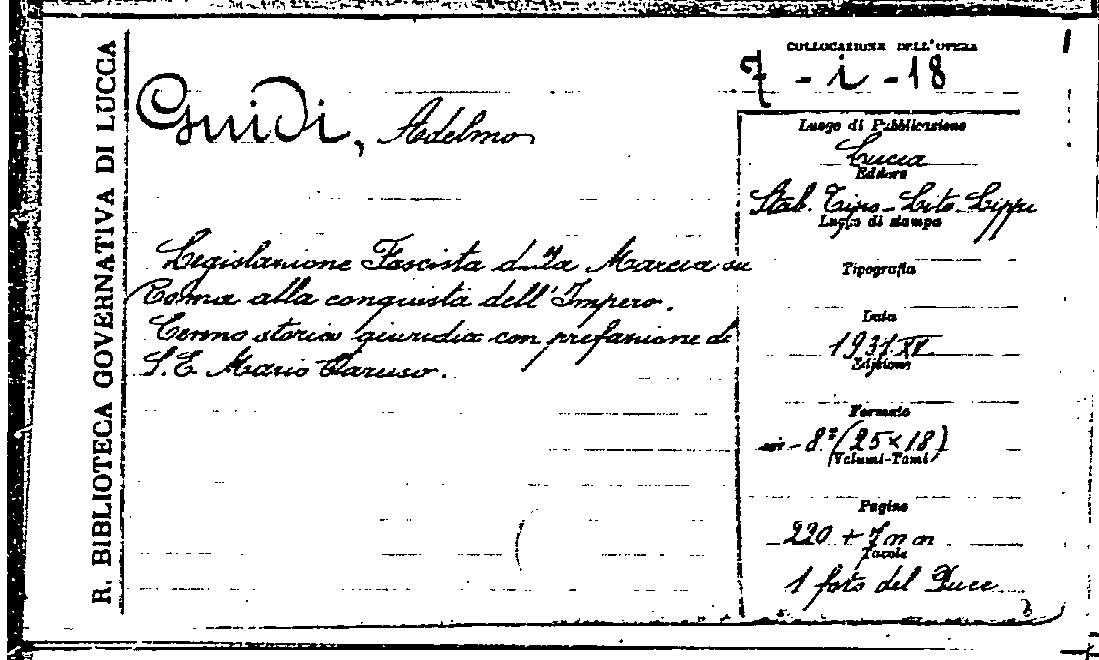 R. BIBLIOTECA GOVERNATIVA DI LUCCA
COLLOCAZIONE DELL'OPERA
7 - i - 18
Guidi, Adelmo
Legislazione Fascista dalla Marcia su
Roma alla conquista dell'Impero.
Cenno storico giuridico con prefazione di
S. E. Mario Caruso.
Luogo di Pubblicazione
Lucca
Editore
Stab. Tipo-Lito-Lippi
Luogo di stampa
Tipografia
Data
1937 XV
Edizione
Formato
8° (25×18)
Volumi-Tomi
Pagine
220 + 7 n n
Tavole
1 foto del Duce